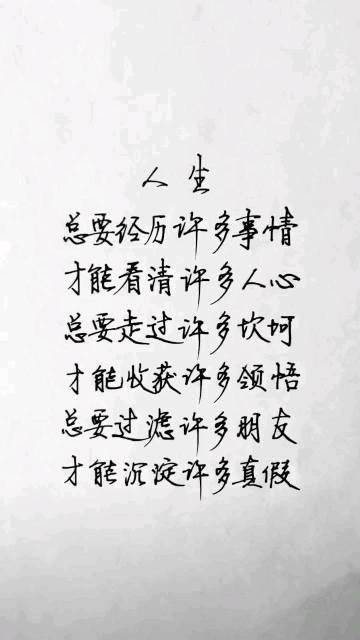 人生
总要经历许多事情
才能看清许多人心
总要走过许多坎坷
才能收获许多领悟
总要过滤许多朋友
才能沉淀许多真假